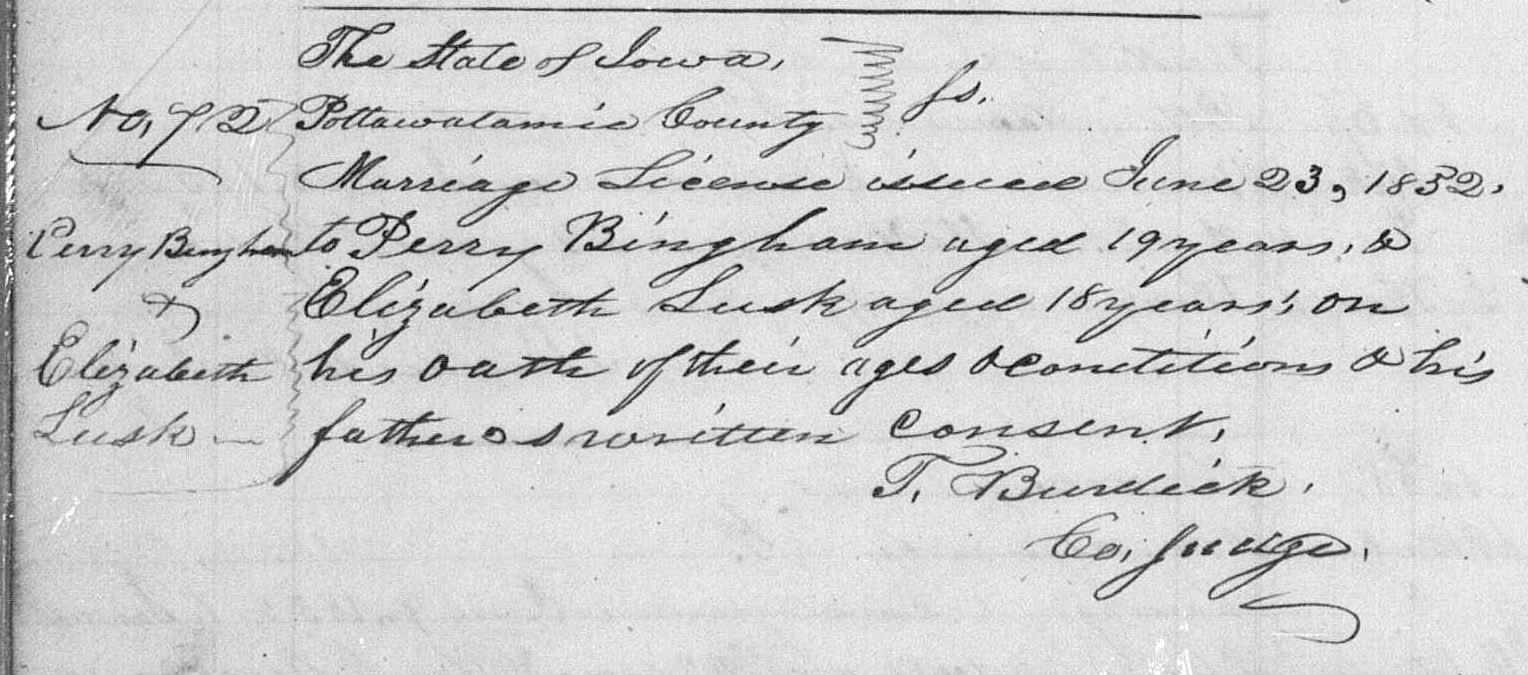 The State of Iowa,
Pottawatamie County } ss.
No, 72
Marriage License issued June 23, 1852,
Perry Bingham
to Perry Bingham aged 19 years, &
&
Elizabeth Lusk aged 18 years, on
Elizabeth
his oath of their ages & conditions & his
Lusk —
father's written consent,
T. Burdick,
Co, Judge,